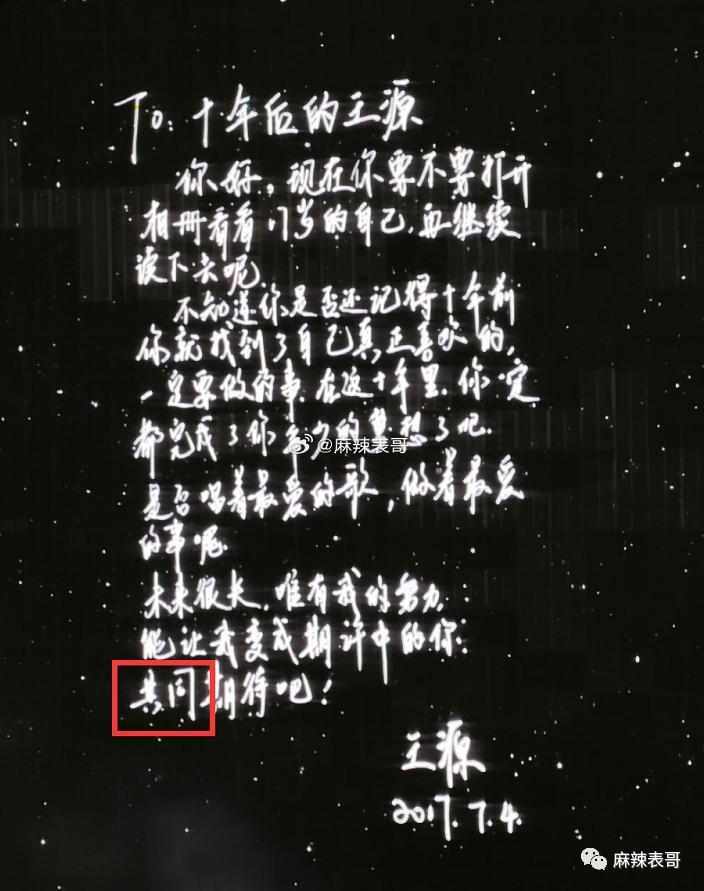 To: 十年后的王源
你好,现在你要不要打开
相册看看17岁的自己,再继续
读下去呢
不知道你是否还记得十年前
你就找到了自己真正喜欢的,
一定要做的事.在这十年里.你一定
都完成了你年少的梦想了吧.
@麻辣表哥
是否唱着最爱的歌,做着最爱
的事呢.
未来很长.唯有我的努力,
能让我变成期许中的你.
共同期待吧!
王源
2017.7.4.
麻辣表哥